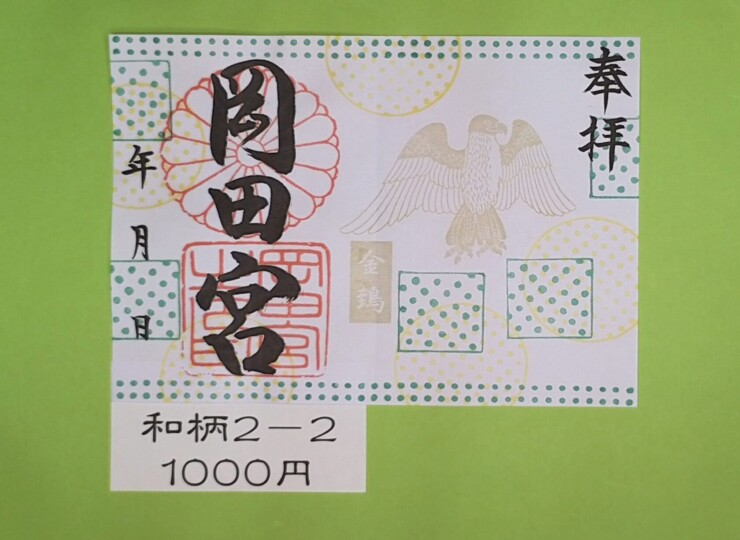 奉拝
金鵄
岡田宮
年 月 日
和柄2-2
1000円